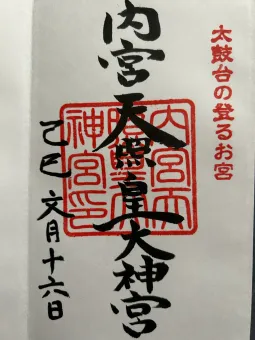 太鼓台の登るお宮
内宮 天照皇大神宮
己巳 文月十六日
内宮天
神宮印